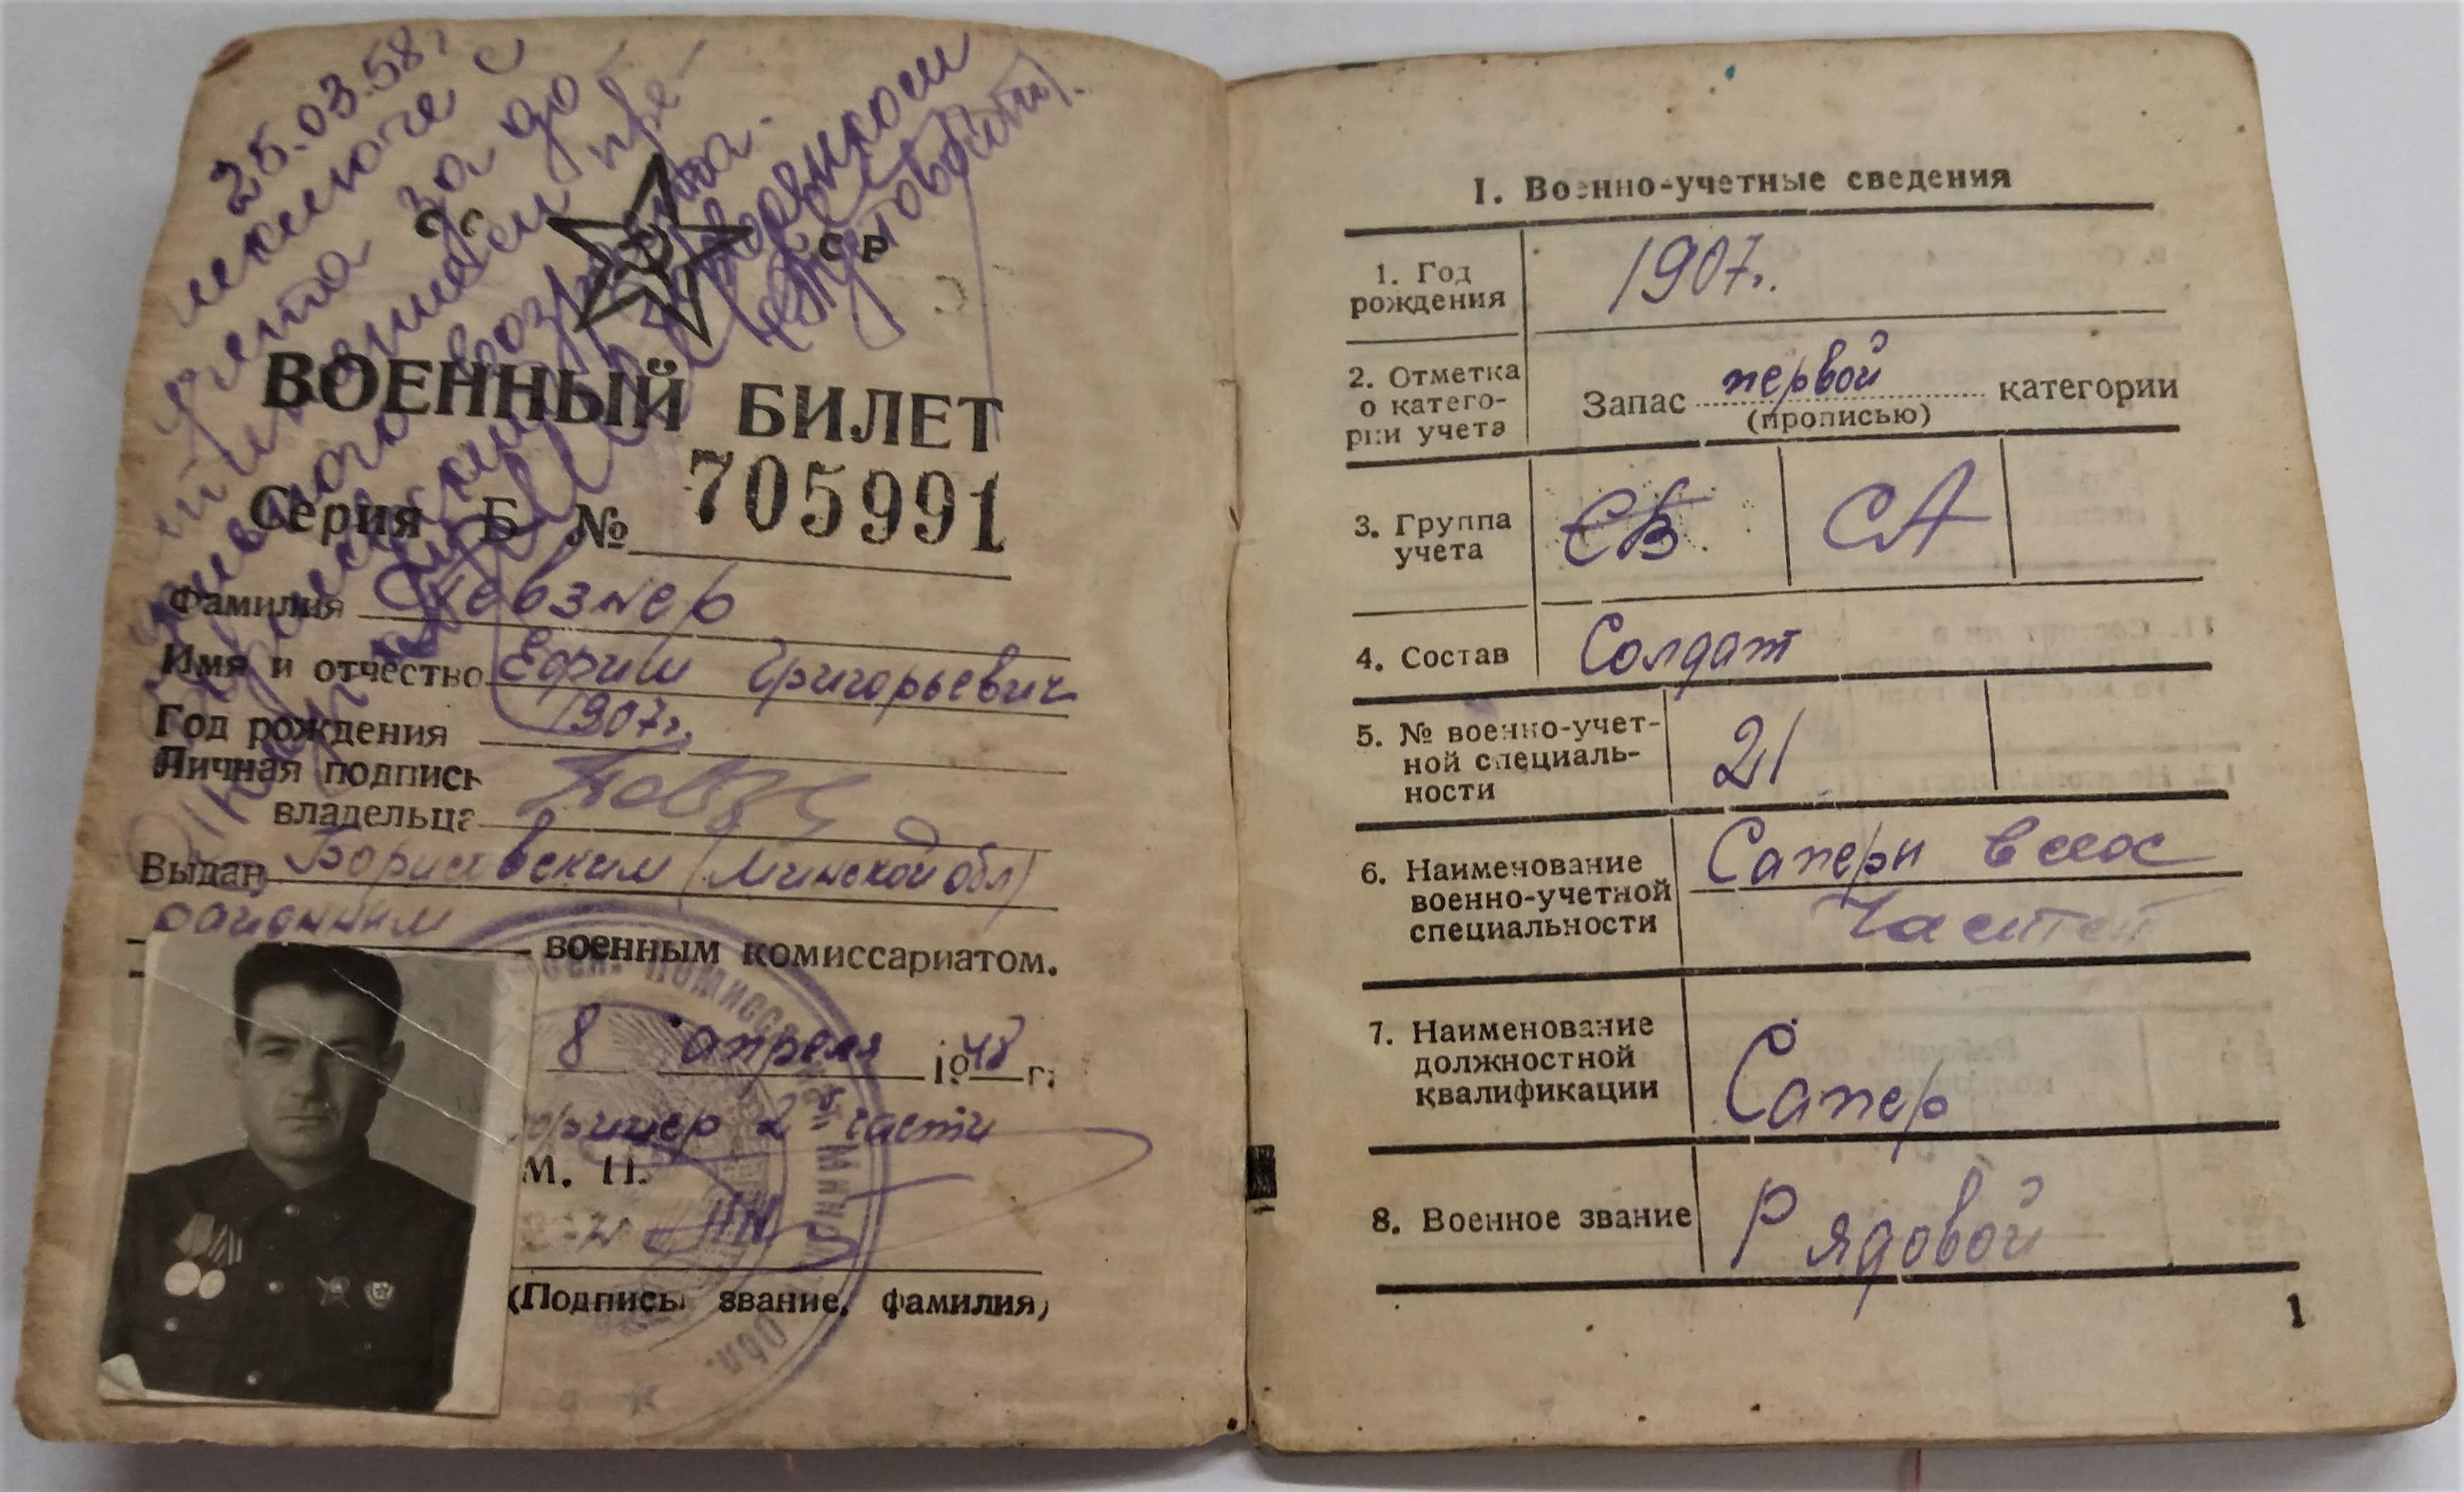 25.03.58г
исключен с
учета за до-
стижением пре-
дельного возраста.
СС СР
ВОЕННЫЙ БИЛЕТ
Серия Б № 705991
Фамилия Певзнер
Имя и отчество Ефим Григорьевич
Год рождения 1907г.
Личная подпись
владельца
Выдан Борисовским (Минской обл)
районным
военным комиссариатом.
8 апреля 1948 г.
2й части
М. П.
(Подпись, звание, фамилия)
I. Военно-учетные сведения
1. Год
рождения
1907г.
2. Отметка
о катего-
рии учета
Запас первой категории
(прописью)
3. Группа
учета
СВ СА
4. Состав Солдат
5. № военно-учет-
ной специаль-
ности
21
6. Наименование
военно-учетной
специальности
Сапери
частей
7. Наименование
должностной
квалификации
Сапер
8. Военное звание Рядовой
1